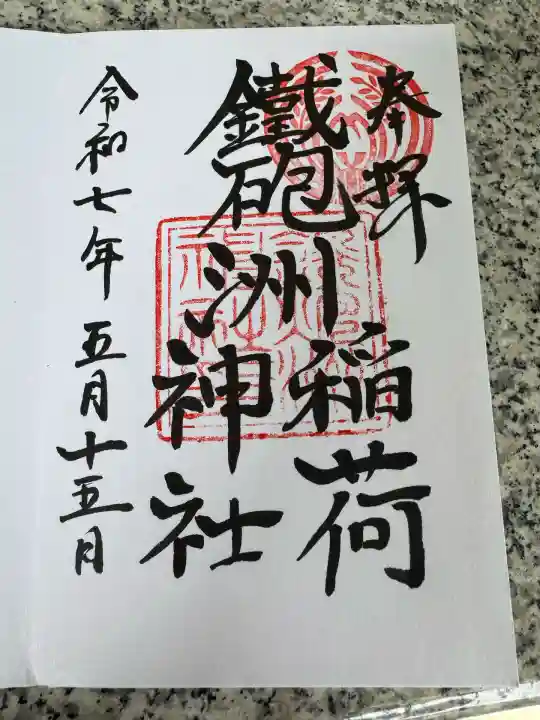 奉拝
鐵砲洲
稲荷
神社
令和七年 五月十五日